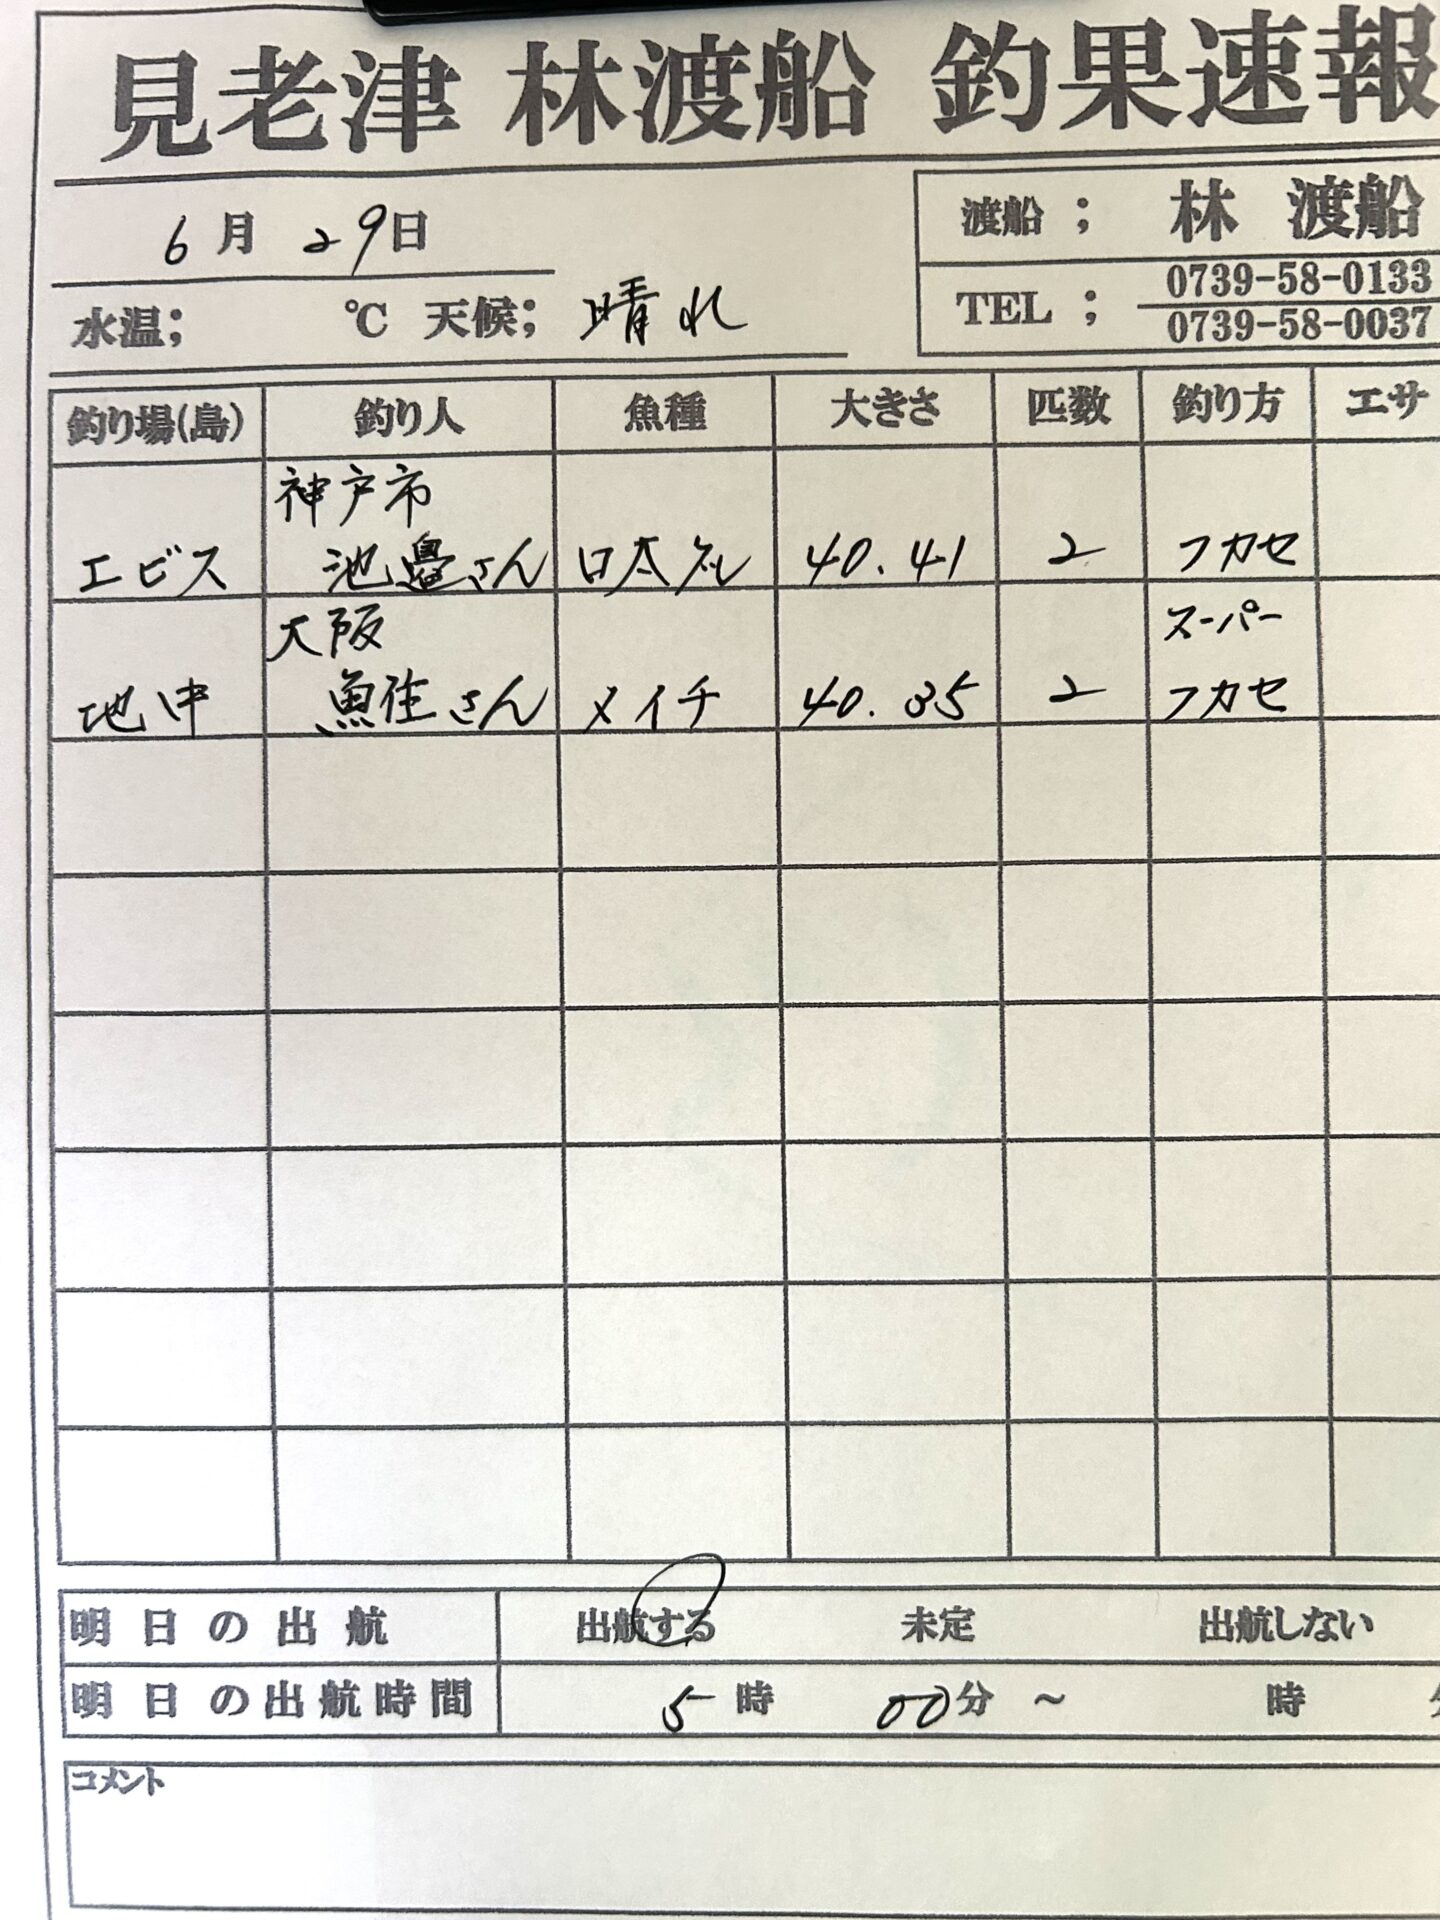 見老津 林渡船 釣果速報
6月 29日
渡船 ; 林 渡船
水温; ℃ 天候; 晴れ
TEL ; 0739-58-0133
0739-58-0037
釣り場(島) 釣り人 魚種 大きさ 匹数 釣り方 エサ
神戸市
エビス 池邉さん 口太グレ 40.41 2 フカセ
大阪 スーパー
地中 魚住さん メイチ 40.35 2 フカセ
明日の出航 出航する 未定 出航しない
明日の出航時間 5時 00分 ～ 時
コメント